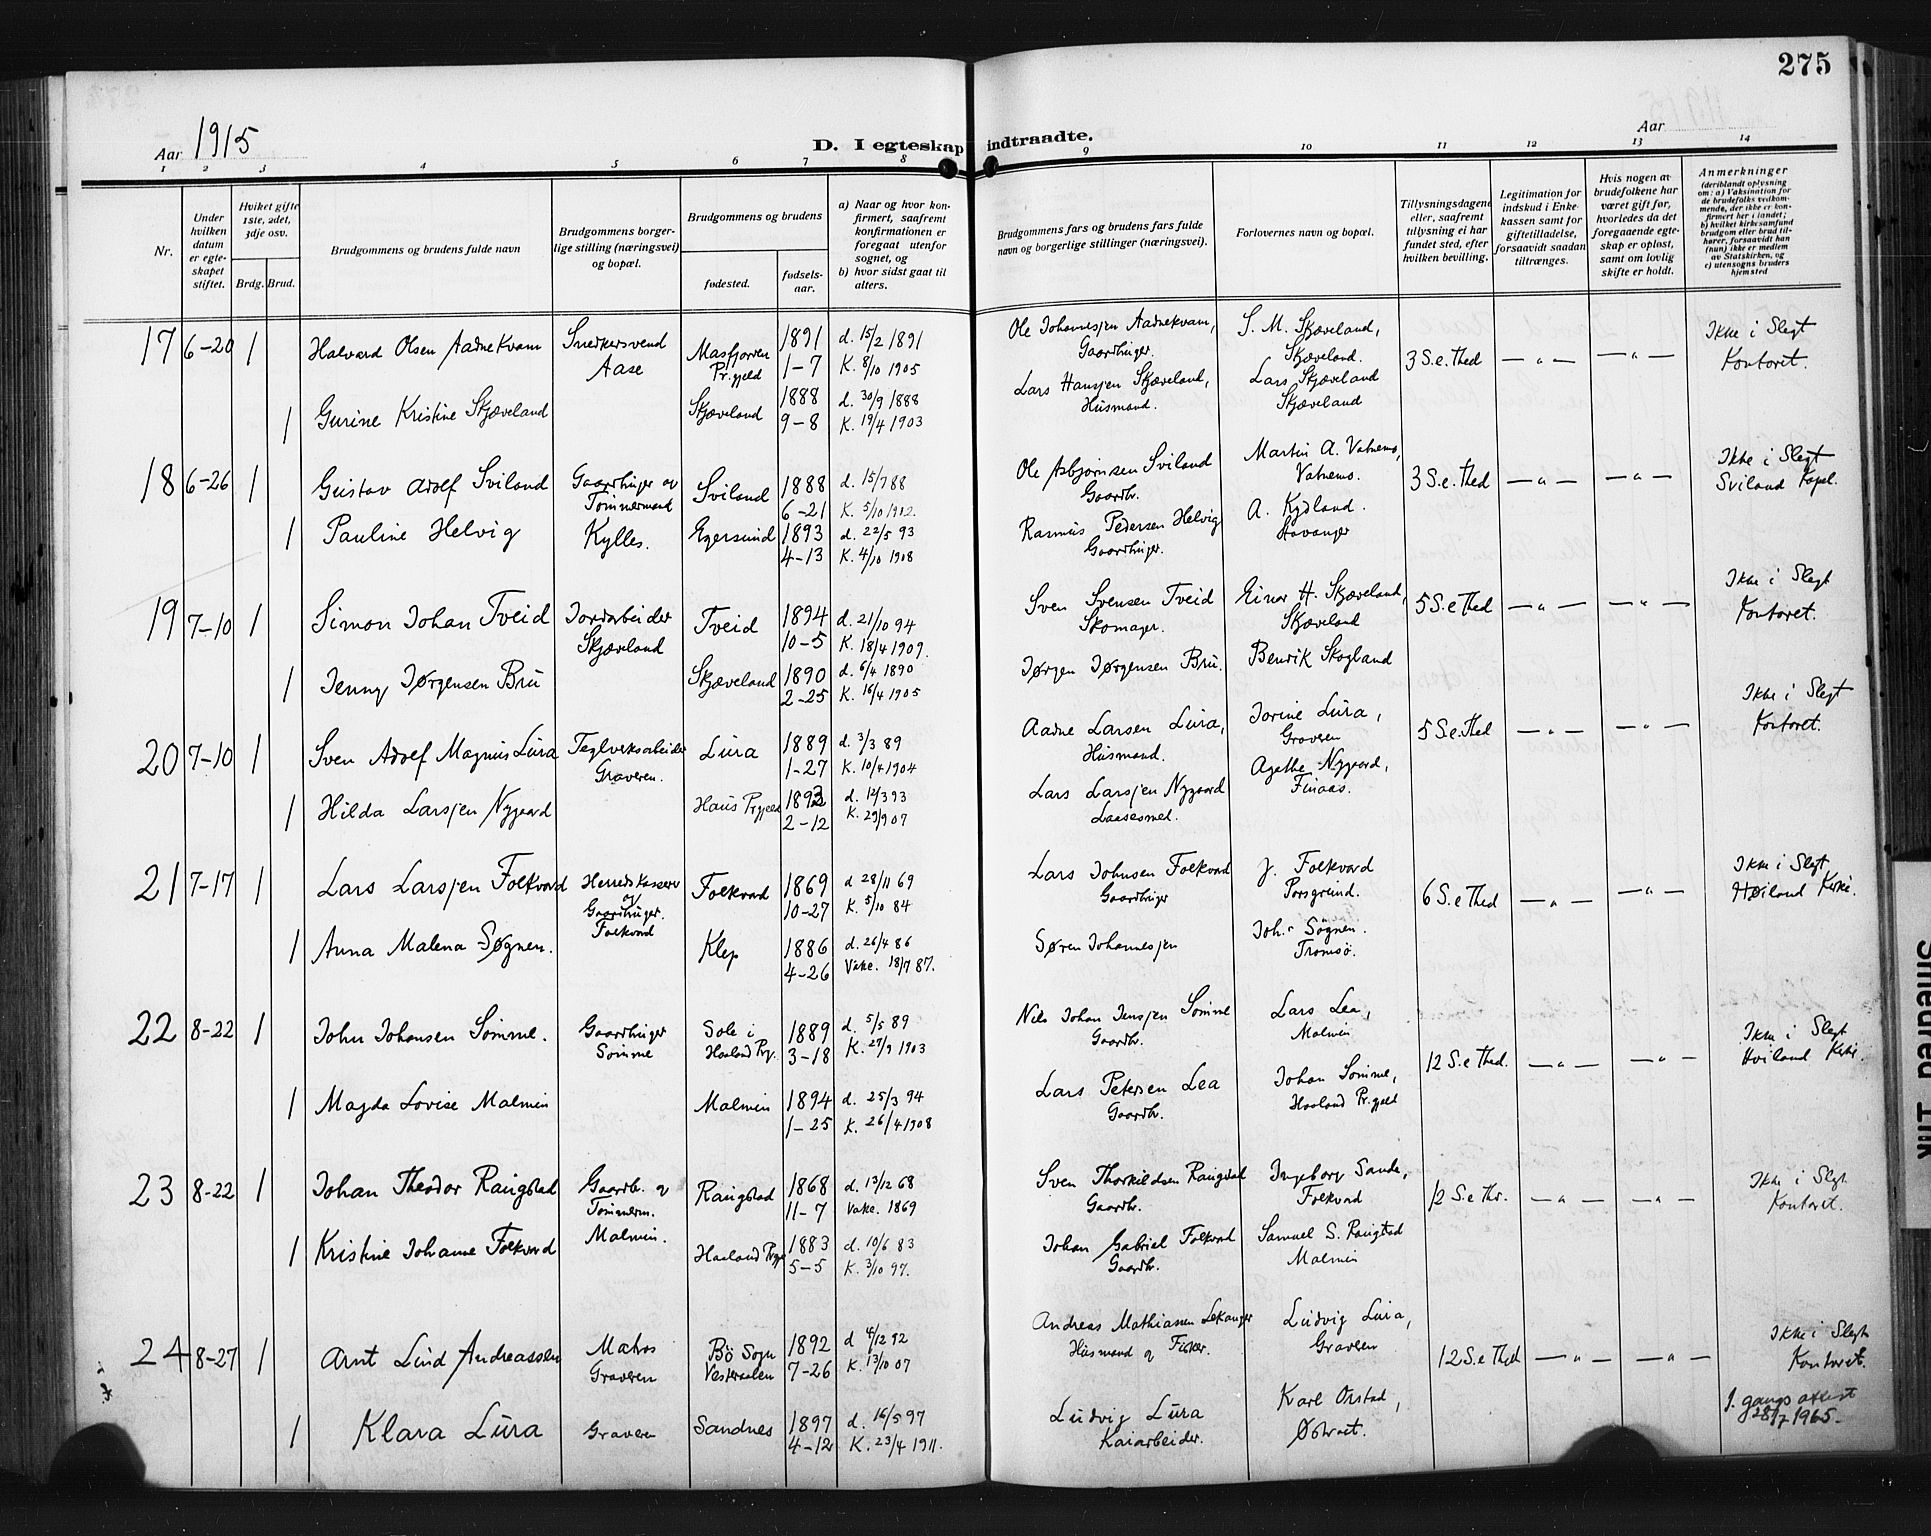 275
Aar 1915
D. I egteskap indtraadte.
Aar
1 2 3 4 5 6 7 8 9 10 11 12 13 14
Nr.
Under hvilken datum er egteskapet stiftet.
Hviket gifte 1ste, 2det, 3dje osv.
Brdg. Brud.
Brudgommens og brudens fulde navn
Brudgommens borgerlige stilling (næringsvei) og bopæl.
Brudgommens og brudens
fødested.
fødselsaar.
a) Naar og hvor konfirmert, saafremt konfirmationen er foregaat utenfor sognet, og
b) hvor sidst gaat til alters.
Brudgommens fars og brudens fars fulde navn og borgerlige stillinger (næringsvei).
Forlovernes navn og bopæl.
Tillysningsdagene eller, saafremt tillysning ei har fundet sted, efter hvilken bevilling.
Legitimation for indskud i Enkekassen samt for giftetilladelse, forsaavidt saadan tiltrænges.
Hvis nogen av brudefolkene har været gift før, hvorledes da det foregaaende egteskap er opløst, samt om lovlig skifte er holdt.
Anmerkninger
(deriblandt oplysning om: a) Vaksination for de brudefolks vedkommende, der ikke er konfirmert her i landet; b) hvilket kirkesamfund brudgom eller brud tilhører, forsaavidt han (hun) ikke er medlem av Statskirken, og c) utensogns bruders hjemsted
17 6-20 1 Halvard Olsen Aadnekvam Snedkersvend Aase Masfjorden Pr.gjeld 1891 1-7 d. 15/2 1891 K. 8/10 1905 Ole Johannesjen Aadnekvam, Gaardbruger. S. M. Skjæveland, Skjæveland. 3 S.e. Thed — " — — " — Ikke i Slegt Kontoret.
1 Gurine Kristine Skjæveland Skjæveland 1888 9-8 d. 30/9 1888 K. 19/4 1903 Lars Hansjen Skjæveland, Husmand. Lars Skjæveland Skjæveland
18 6-26 1 Gustav Adolf Sviland Gaardbruger og Tømmermand Sviland 1888 6-21 d. 15/7 88 K. 5/10 1902. Ole Asbjørnsen Sviland Gaardbr. Martin A. Vatnemo, Vatnemo. 3 S.e. Thed — " — — " — Ikke i Slegt Sviland Kapel.
1 Pauline Helvig Kylles. Egersund 1893 4-13 d. 22/5 93 K. 4/10 1908 Rasmus Pedersen Helvig Gaardbruger. A. Kydland. Stavanger
19 7-10 1 Simon Johan Tveid Jordarbeider Skjæveland Tveid 1894 10-5 d. 21/10 94 K. 18/4 1909. Sven Svensen Tveid Skomager. Einar H. Skjæveland, Skjæveland 5 S.e Thed — " — — " — Ikke i Slegt Kontoret.
1 Jenny Jørgensen Bru Skjæveland 1890 2-25 d. 6/4 1890 K. 16/4 1905 Jørgen Jørgensen Bru. Benrik Skogland
20 7-10 1 Sven Adolf Magnus Lura Teglverksarbeider Graveren. Lura 1889 1-27 d. 3/3 89 K. 10/4 1904 Aadne Larsen Lura, Husmand. Jorine Lura, Graveren 5 S.e. Thed — " — — " — Ikke i Slegt Kontoret.
1 Hilda Larsjen Nygaard Haus Prgjeld 1893 2-12 d. 12/3 93 K. 29/9 07 Lars Larsjen Nygaard Laasesmed. Agathe Nygaard, Finaas.
21 7-17 1 Lars Larsjen Folkvord Herredskasserer og Gaardbruger. Folkvord Folkvord 1869 10-27 d 28/11 69 K. 5/10 84 Lars Johnsen Folkvord Gaardbruger J. Folkvord Porsgrund. 6 S.e Thed — " — — " — Ikke i Slegt Høiland Kirke.
1 Anna Malena Søgnen. Klep 1886 4-26 d. 26/4 86 Vakc. 18/7 87. Søren Johannesjen Joh. Søgnen. Tromsö.
22 8-22 1 John Johansen Sømme. Gaardbruger Sømme Sole i Haaland Prg. 1889 3-18 d. 5/5 89 K. 27/9 1903 Nils Johan Jensjen Sømme Gaardbr. Lars Lea, Malmin 12 S.e Thed. — " — — " — Ikke i Slegt Høiland Kirke.
1 Magda Lovise Malmin Malmin 1894 1-25 d. 25/3 94 K. 26/4 1908 Lars Petersen Lea Gaardbr. Johan Sømme, Haaland Pr.gjeld
23 8-22 1 Johan Theodor Raugstad Gaardbr. og Tømmerm. Malmin. Raugstad 1868 11-7 d. 13/12 68 Vakc. 1869 Sven Thorkildsen Raugstad Gaardbr. Ingeborg Sande, Folkvord 12 S.e Thr. — " — — " — Ikke i Slegt Kontoret.
1 Kristine Johanne Folkvord Haaland Prgj. 1883 5-5 d. 10/6 83 K. 3/10 97. Johan Gabriel Folkvord Gaardbr. Samuel S. Raugstad Malmin
24 8-27 1 Arnt Lind Andreassen Matros Graveren Bö Sogn Vesteraalen 1892 7-26 d 4/12 92 K. 13/10 07 Andreas Mathiassen Lekanger Husmand og Fisker. Ludvig Lura, Graveren 12 S.e Thed — " — — " — Ikke i Slegt Kontoret.
1 Klara Lura Graveren Sandnes 1897 4-12 d. 16/5 97 K. 23/4 1911. Ludvig Lura Kaiarbeider. Karl Orstad, Østraat. J. gangs attest 28/7 1965.